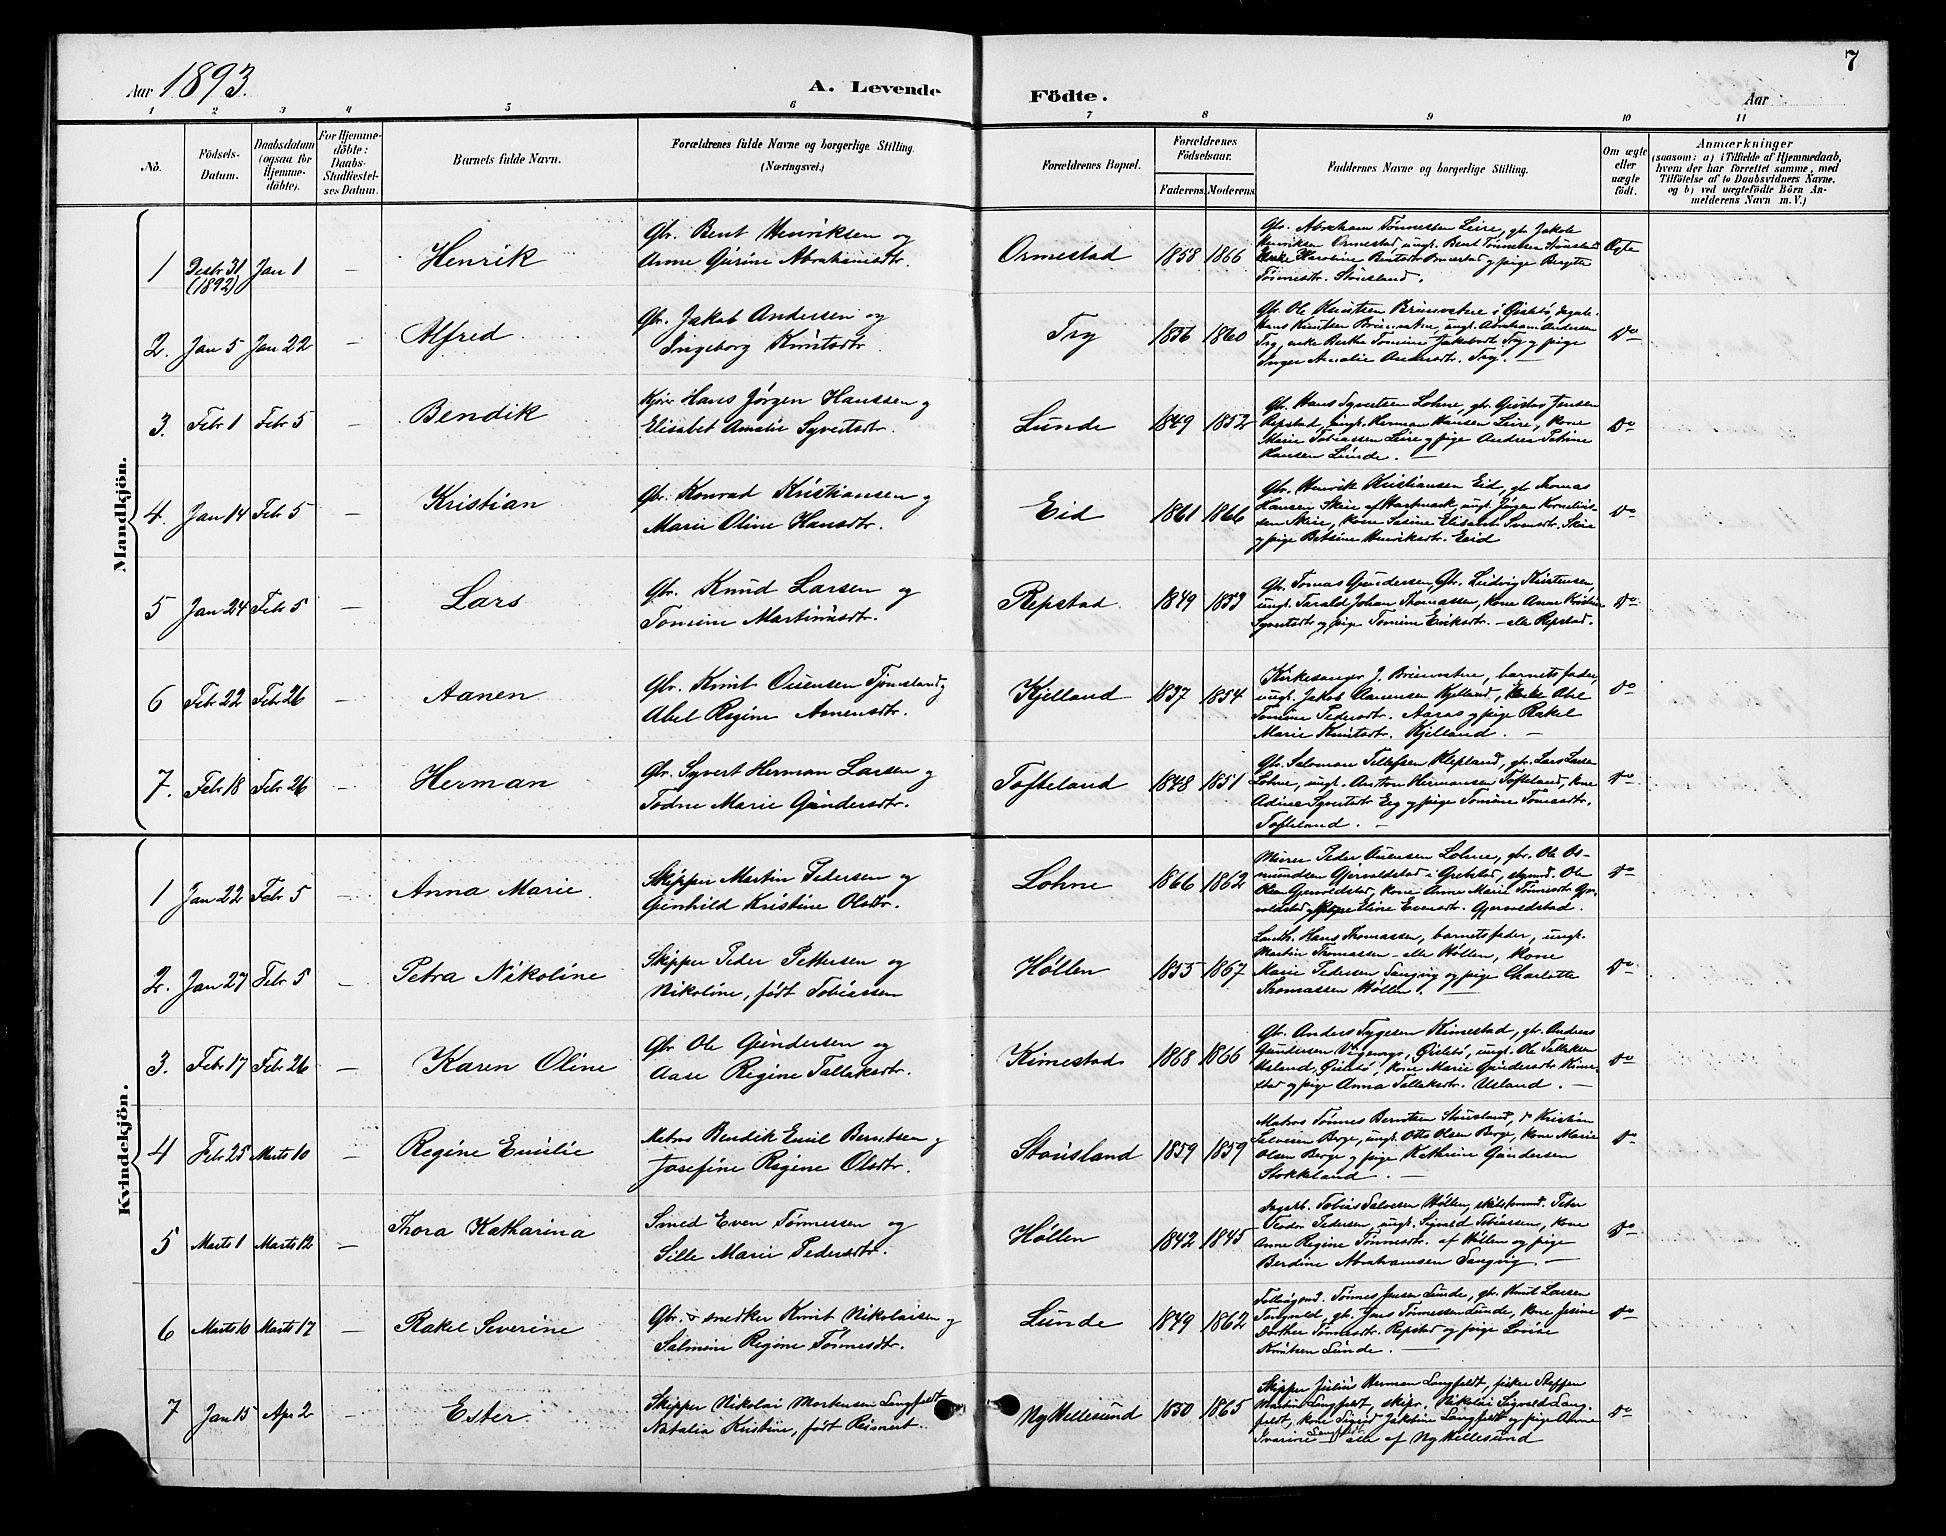 7
Aar 1893.
A. Levende Födte.
Aar
1 2 3 4 5 6 7 8 9 10 11
No.
Födsels-Datum.
Daabsdatum (ogsaa for Hjemme-döbte).
For Hjemme-döbte: Daabs-Stadfæstel-ses Datum.
Barnets fulde Navn.
Forældrenes fulde Navne og borgerlige Stilling.
(Næringsvei.)
Forældrenes Bopæl.
Forældrenes Födselsaar.
Faderens. Moderens.
Faddernes Navne og borgerlige Stilling.
Om ægte eller uægte födt.
Anmærkninger
(saasom: a) i Tilfælde af Hjemmedaab,
hvem der har forrettet samme, med
Tilföielse af to Daabsvidners Navne,
og b) ved uægtefödte Börn An-
melderens Navn m. V.)
Mandkjön.
1 Desbr. 31 (1892) Jan 1 — Henrik
Gbr. Bent Henriksen og
Anne Gurine Abrahamsdtr.
Ormestad 1858 1866
Gbr. Abraham Tønnessen Leire, gbr Jakob
Henriksen Ormestad, ungk. Bent Tønnesen Stausland
Enke Karoline Bentsdtr Ormestad og pige Bergitte
Tønnesdtr. Stausland.
Ægte
2. Jan 5 Jan 22 — Alfred
Gbr. Jakob Andersen og
Ingeborg Knutsdtr.
Try 1856 1860
Gbr. Ole Knutsen Brunvatne i Øislebø,
Hans Knutsen Brunvatne, ungk. Abraham Andersen
Try, enke Berthe Tomine Jakobsdt Try og pige
Inger Amalie Andersdtr. Try. —
Do
3. Febr 1 Febr 5 — Bendik
Hans Jørgen Hanssen og
Elisabet Amalie Syvertsdtr.
Lunde 1849 1852
Gbr. Hans Syvertsen Lohne, gbr. Gustav Jensen
Repstad, ungk. Herman Hansen Leire, kone
Marie Tobiassen Leire og pige Andrea Petrine
Hansen Lunde. —
Do
4. Jan 14 Febr 5 — Kristian
Gbr. Konrad Kristiansen og
Marie Oline Hansdtr.
Eid 1861 1866
Gbr. Henrik Kristiansen Eid, gbr Tomas
Hansen Skeie af Hartmark, ungk Jørgen Kornelius-
sen Skeie, kone Sesine Elisabet Svensdtr. Skeie
og pige Betsine Henriksdtr. Eeid
Do
5 Jan 24 Febr 5 — Lars
Gbr. Knud Larsen og
Tomine Martinusdtr.
Repstad. 1849 1853
Gbr. Tomas Gundersen, Gbr. Ludvig Kristensen,
ungk. Tarald Johan Thomassen, kone Anne Kristine
Syvertsdtr og pige Tomine Eriksdtr. — alle Repstad.
Do
6 Febr 22 Febr 26 — Aanen
Gbr. Knut Ouensen Tjomsland og
Abel Regine Aanensdtr.
Kjelland 1837 1854
Kirkesanger J. Brunvatne, barnets fader,
ungk. Jakob Aanensen Kjelland, Enke Abel
Tomine Pedersdtr. Aaros og pige Rakel
Marie Knutsdtr. Kjelland. —
Do
7. Febr 18 Febr 26 — Herman
Gbr. Syvert Herman Larsen og
Todne Marie Gundersdtr.
Tofteland 1848 1851
Gbr. Salomon Tellefsen Klepland, gbr. Lars Larsen
Lohne, ungk. Anton Hermansen Tofteland, kone
Adine Syvertsdtr Eeg og pige Tomine Tomasdtr.
Tofteland. —
Do
Kvindekjön.
1 Jan 22 Febr 5 — Anna Marie
Skipper Martin Pedersen og
Gunhild Kristine Olsdtr.
Lohne 1866 1862
Murer Peder Ouensen Lohne, gbr. Ole Os-
mundsen Gjervoldstad i Greipstad, Ole
Olsen Gjervoldstad, kone Anne Marie Tønnesdtr Gjer-
voldstad og pige Eline Evensdtr. Gjervoldstad.
Do
2. Jan 27 Febr 5 — Petra Nikoline
Skipper Peder Pettersen og
Nikoline, født Tobiassen
Høllen 1855 1867
Landh. Hans Thomassen, barnets fader, ungk.
Martin Thomassen — alle Høllen, kone
Marie Pedersen Sangvig og pige Charlotte
Thomassen Høllen. —
Do
3. Febr 17 Febr 26 — Karen Oline
Gbr Ole Gundersen og
Aase Regine Tallaksdtr.
Kimestad 1868 1866
Gbr. Anders Tygesen Kimestad, gbr. Andreas
Gundersen Øislebø, ungk. Ole Tallaksen
Usland, Øislebø, kone Marie Gundersdtr Kime-
stad og pige Anna Tallaksdtr. Usland. —
Do
4 Febr 25 Marts 10 — Regine Emilie
Matros Bendik Emil Berntsen og
Josefine Regine Olsdtr.
Stausland 1859 1859
Matros Tønnes Berntsen Stausland, do Kristian
Salvesen Berge, ungk. Otto Olsen Berge, kone Marie
Olsen Berge og pige Kathrine Gundersen
Stokkeland. —
Do
5 Marts 1 Marts 12 — Thora Katharina
Smed Even Tønnessen og
Sille Marie Pedersdtr.
Høllen 1842 1845
Tobias Salvesen Høllen, Peter
Teodor Pedersen, ungk. Sigvald Tobiassen, kone
Anne Regine Tønnesdtr. af Høllen og pige
Berdine Abrahamsen Sangvig. —
Do
6 Marts 10 Marts 17 — Rakel Severine
Gbr. & snedker Knut Nikolaisen og
Salmine Regine Tønnesdtr.
Lunde 1849 1862
Tønnes Jensen Lunde, gbr. Knut Larsen
gbr. Jens Tønnessen Lunde, kone Jesine
Dorthea Tønnesdtr. Repstad og pige Lovise
Knutsen Lunde. —
Do
7 Jan 15 Apr 2 — Ester
Skipper Nikolai Mortensen Langfeldt
Natalia Kristine, født Reinert.
Ny Hellesund 1850 1865
Skipper Julius Herman Langfeldt, fisker Steffen
Martin Langfeldt, skipr. Nikolai Sigvald Lang-
feldt, kone Sigrid Jakobine Langfeldt og pige Anne
Ivarine Langfeldt — alle af Ny Hellesund
Do